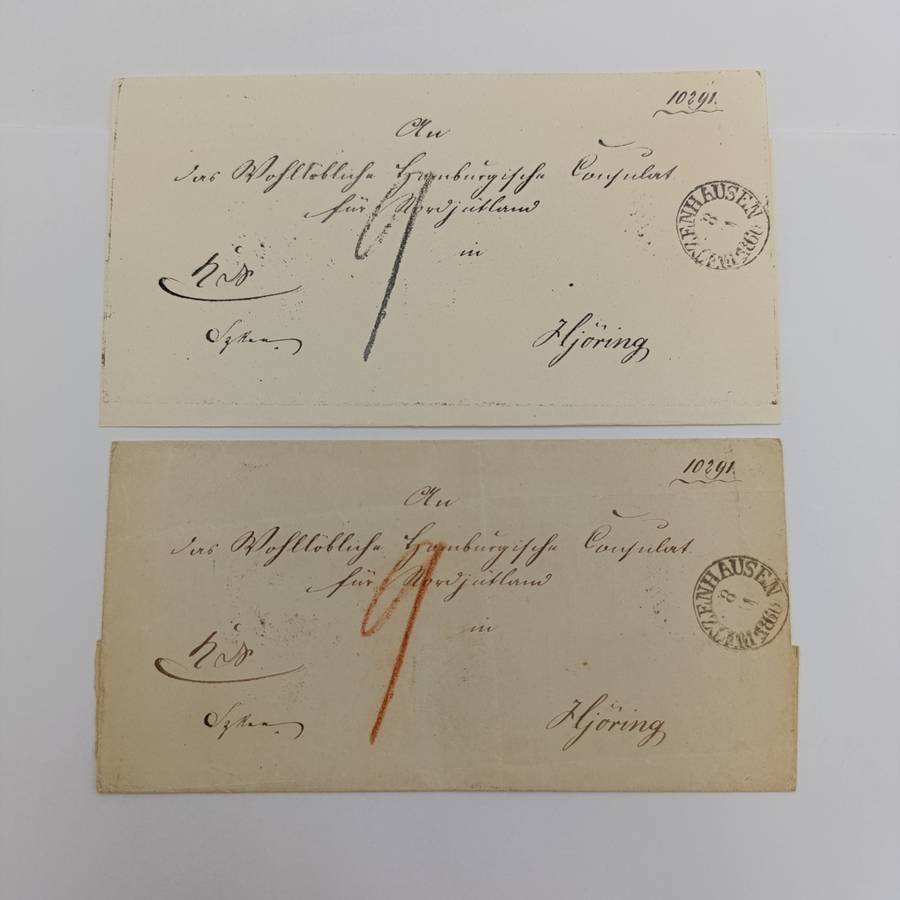 10291.
An
das Wohllöbliche Hamburgische Consulat
für Nordjütland
in
Hjöring
9
WITZENHAUSEN
8 1
1866
10291.
An
das Wohllöbliche Hamburgische Consulat
für Nordjütland
in
Hjöring
9
WITZENHAUSEN
8 1
1866